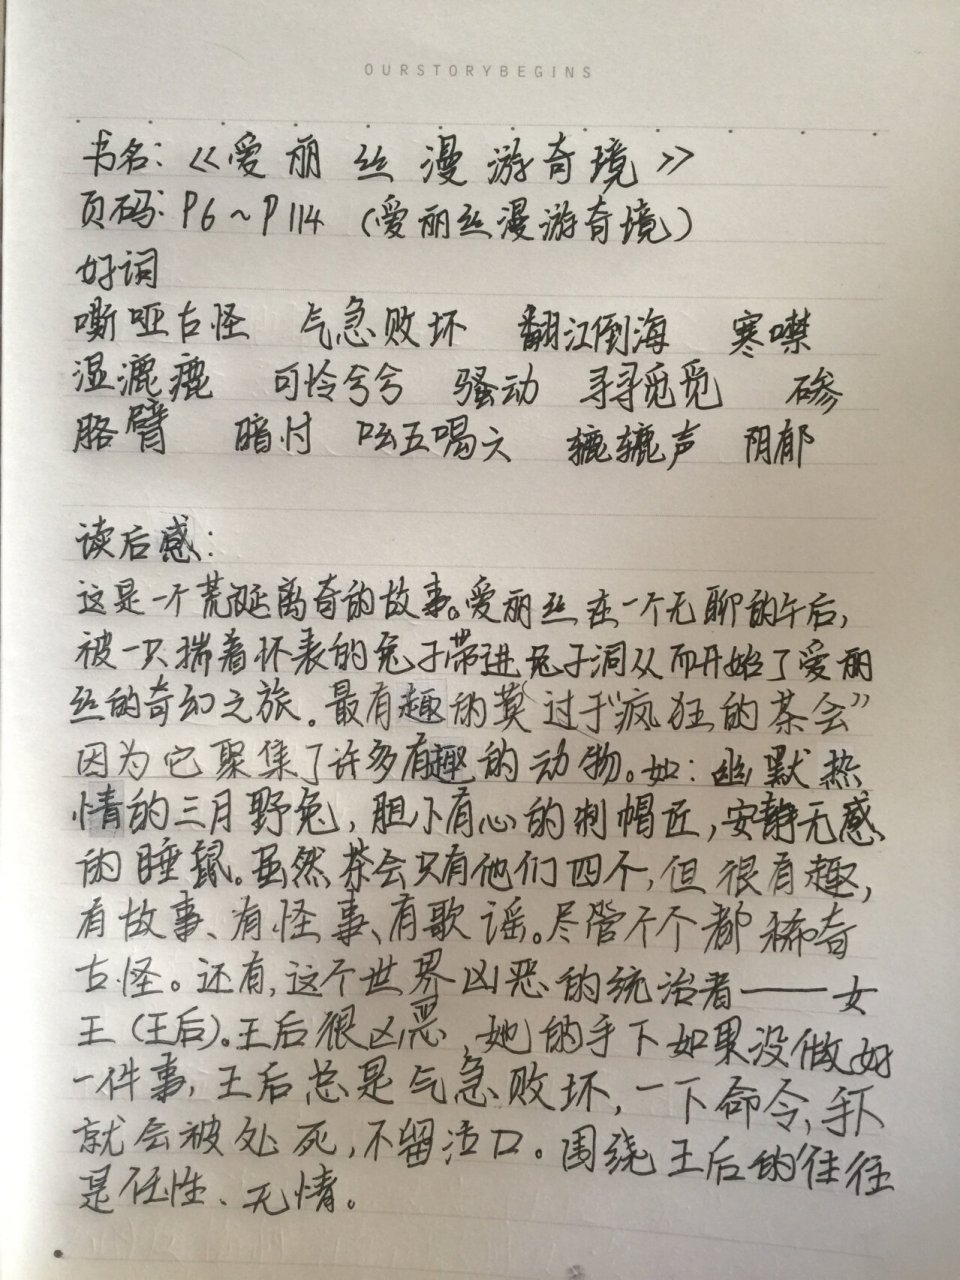 OURSTORYBEGINS
书名：《爱丽丝漫游奇境》
页码：P6～P114（爱丽丝漫游奇境）
好词
嘶哑古怪 气急败坏 翻江倒海 寒噤
湿漉漉 可怜兮兮 骚动 寻寻觅觅 碜
胳臂 暗忖 吆五喝六 辘辘声 阴郁
读后感：
这是一个荒诞离奇的故事。爱丽丝在一个无聊的午后，
被一只揣着怀表的兔子带进兔子洞从而开始了爱丽
丝的奇幻之旅。最有趣的莫过于“疯狂的茶会”
因为它聚集了许多有趣的动物。如：幽默热
情的三月野兔，胆小有心的制帽匠，安静无感
的睡鼠。虽然茶会只有他们四个，但很有趣，
有故事、有怪事、有歌谣。尽管个个都稀奇
古怪。还有，这个世界凶恶的统治者——女
王（王后）。王后很凶恶，她的手下如果没做好
一件事，王后总是气急败坏，一下命令，手下
就会被处死，不留活口。围绕王后的往往
是任性、无情。